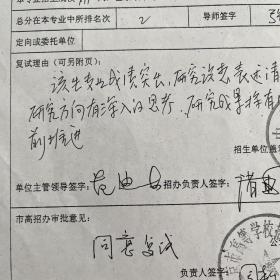 总分在本专业中所排名次 2 导师签字
定向或委托单位
复试理由（可另附页）：
该生专业成绩突出，研究设想表述清
研究方向有深入的思考，研究成果将有
前推进
招生单位盖
单位主管领导签字： 招办负责人签字：
市高招办审批意见：
同意复试
市高等学校
负责人签字